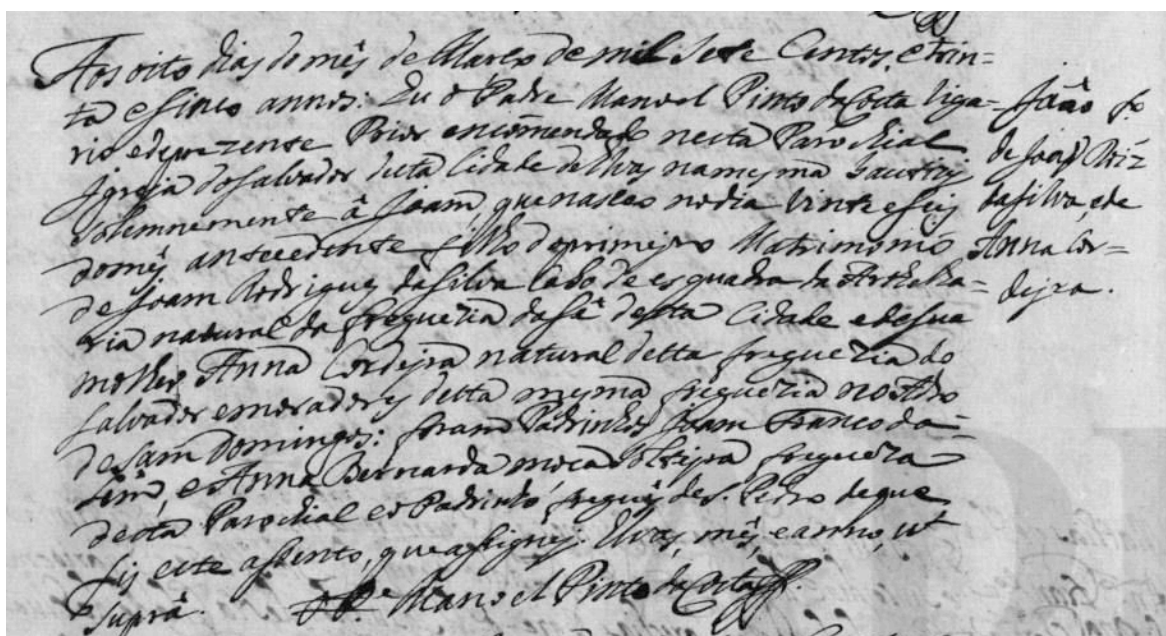 Aos oito dias do mês de Março de mil sete Centos, e trin=
ta e sinco annos: Eu o Padre Manoel Pinto da Costa Viga=
rio e de prezente Prior encõmendado nesta Parochial
Igreja do Salvador desta Cidade de Elvas na mesma bautizei
solemnemente â Joam, que nasceo no dia vinte e seis
do mês antecedente filho do primeyro Matrimonio
de Joam Rodriguez da Silva Cabo de esquadra da Artelha=
ria natural da freguezia da Sê desta Cidade e de sua
molher Anna Cordeyra natural desta freguezia do
Salvador e moradores desta mesma freguezia no Adro
de Sam Domingos: foram Padrinhos Joam Franco da
e Anna Bernarda moça solteyra fregueza
desta Parochial e o Padrinho freguês de S. Pedro de que
fis este asento, que asigney. Elvas, mês, e anno, ut
supra. O P.e Manoel Pinto da Costa
Joaõ fo
de Joaõ Roiz
da Silva, e de
Anna Cor=
deyra.